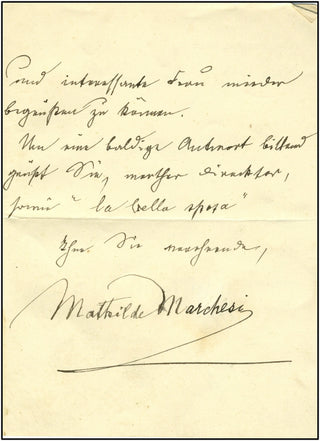 und interessante Frau wieder
begrüßen zu können.
Um eine baldige Antwort bittend
grüßt Sie, werther Direktor,
sowie "la bella sposa"
Ihre Sie verehrende,
Mathilde Marchesi